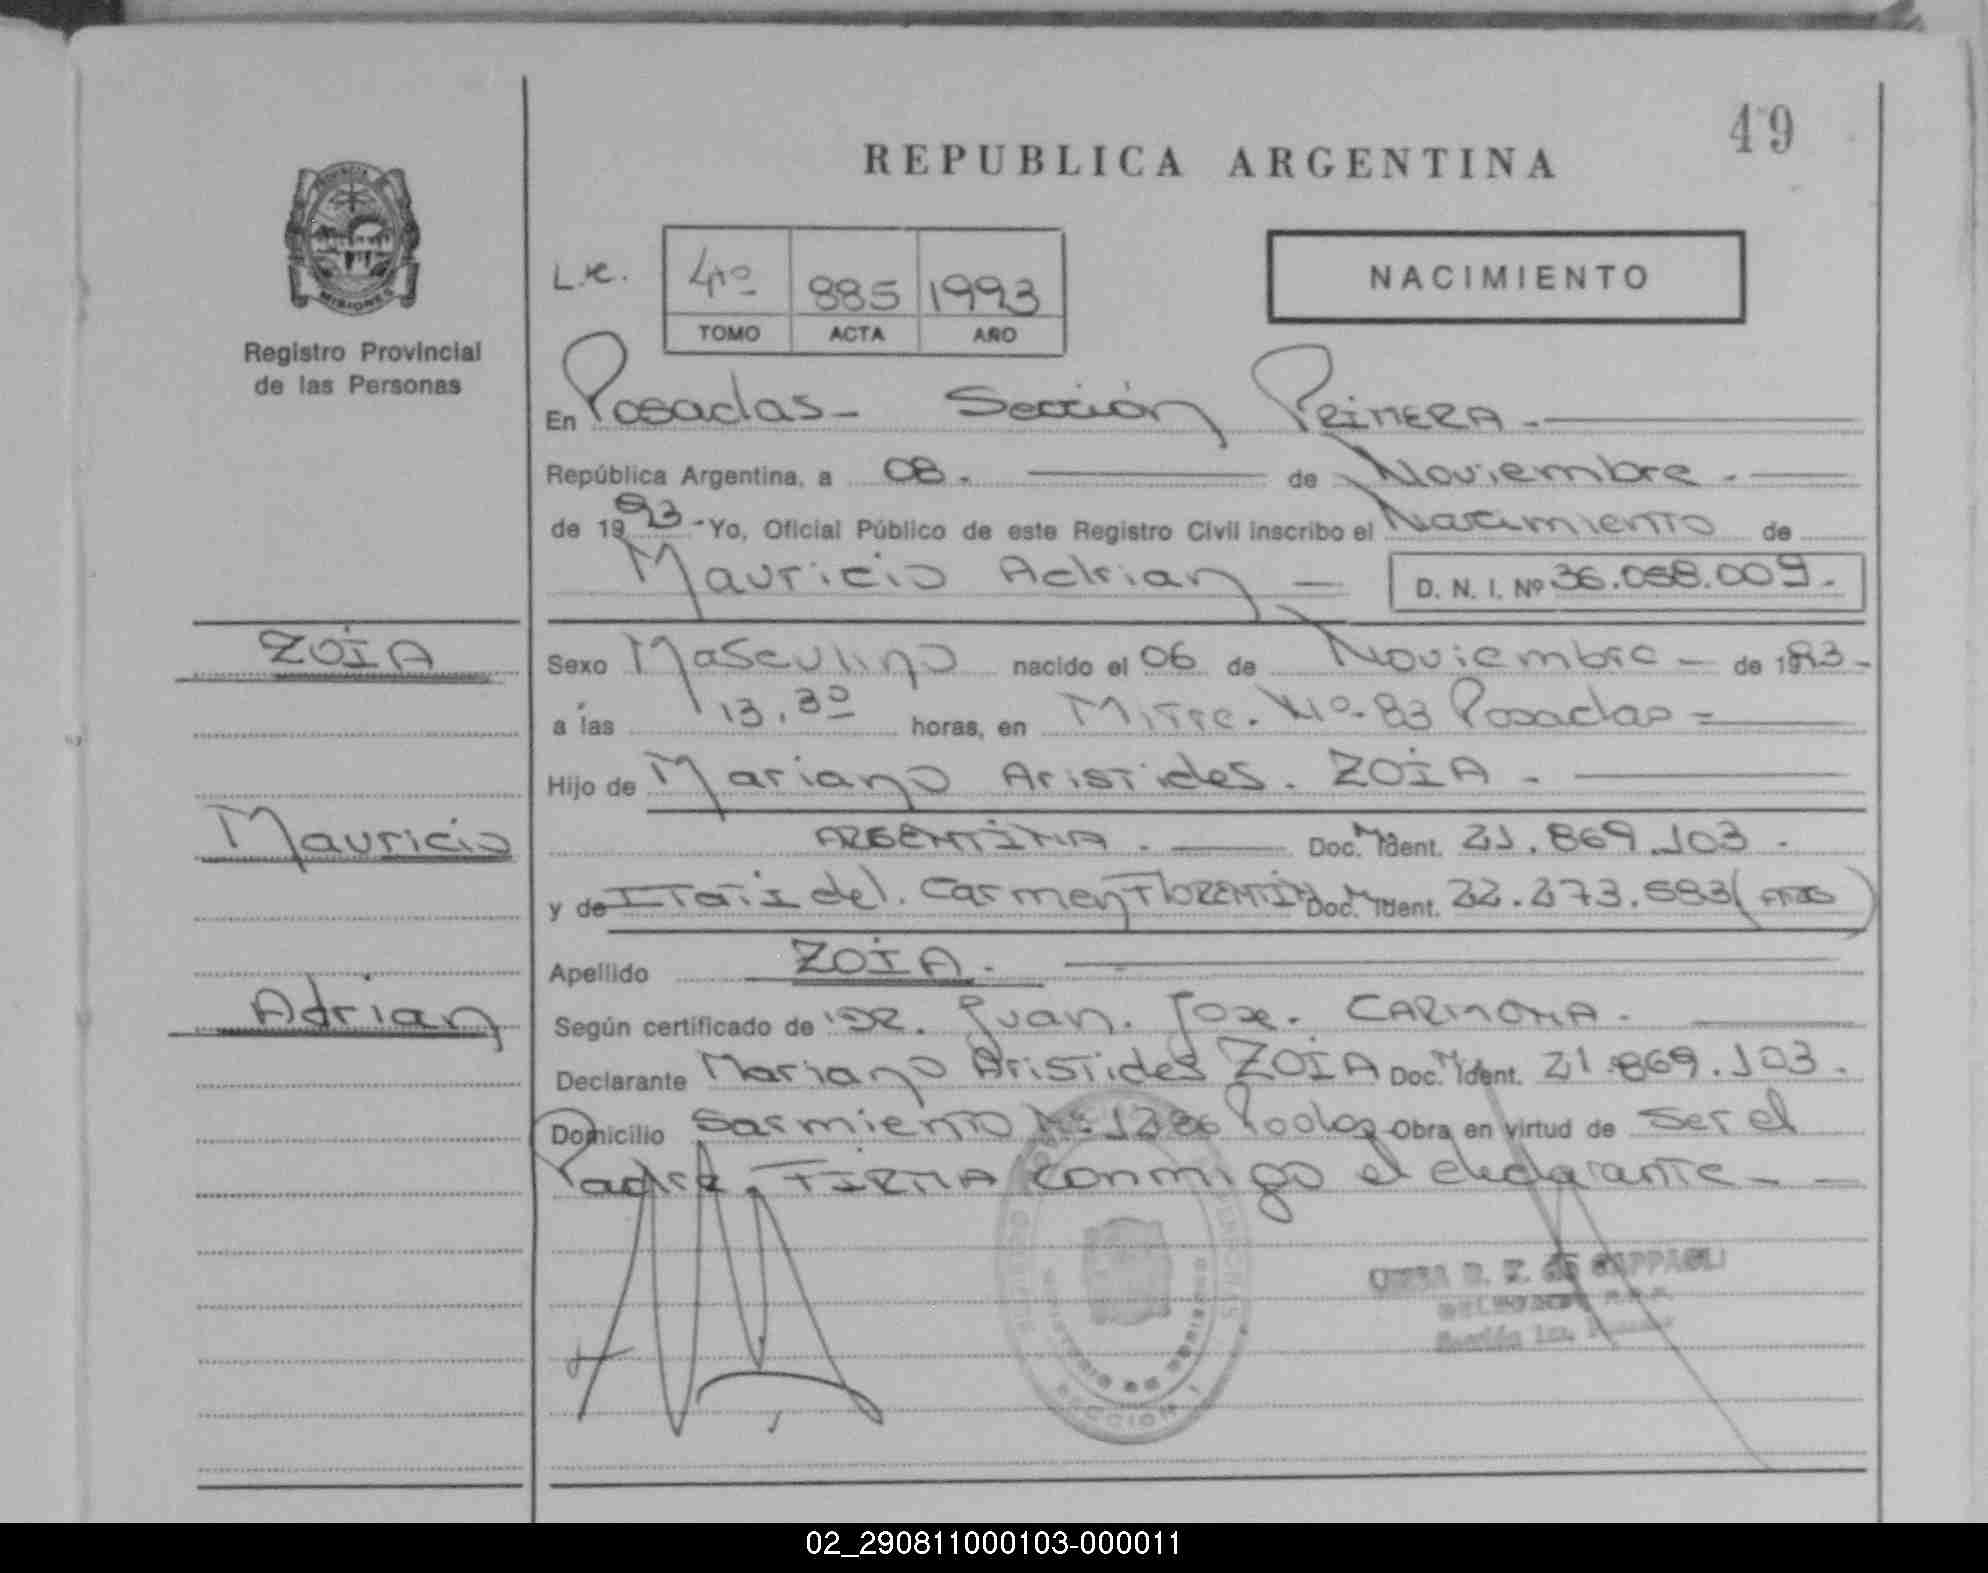 49
REPUBLICA ARGENTINA
MISIONES
Registro Provincial
de las Personas
L.c.
4to 885 1993
TOMO ACTA AÑO
NACIMIENTO
En Posadas - Sección PRIMERA -
República Argentina, a 08. de Noviembre -
de 1993 - Yo, Oficial Público de este Registro Civil inscribo el Nacimiento de
Mauricio Adrian — D. N. I. Nº 36.058.009.-
ZOiA
Sexo Masculino nacido el 06 de Noviembre - de 1993 -
a las 13.30 horas, en Mitre. Nº 83 Posadas =
Hijo de Mariano Aristides. ZOiA -
Mauricio
ARGENTiNA. — Doc. Ident. 21.869.103 -
y de ITATI del. Carmen FLORENTIN Doc. Ident. 22.273.583
Apellido ZOiA.
Adrian
Según certificado de DR. Juan. Jose. CARMONA.
Declarante Mariano Aristides ZOIA Doc. Ident. 21.869.103.
Domicilio Sarmiento Nº 1286 Posdas Obra en virtud de ser el
Padre. FIRMA conmigo el declarante - -
SECCION 1
02_290811000103-000011